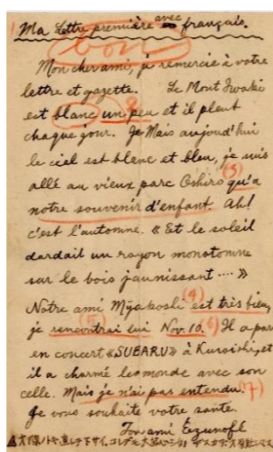 Ma Lettre première avec français.
bon
Mon cher ami, je remercie à votre
lettre et gazette. Le Mont Iwaki
est blanc un peu et il pleut
chaque jour. Mais aujourd'hui
le ciel est blanc et bleu, je suis
allé au vieux parc Oshiro qu'a (3)
notre souvenir d'enfant. Ah!
c'est l'automne. « Et le soleil
dardait un rayon monotomne
sur le bois jaunissant .... »
Notre ami Miyakoshi est très bien, (4)
je rencontrai lui Nov. 10. (5) (6) Il a par
en concert «SUBARU» à Kuroishi, et
il a charmé le monde avec son
celle. Mais je n'ai pas entendu. (7)
Je vous souhaite votre santé.
Ton ami